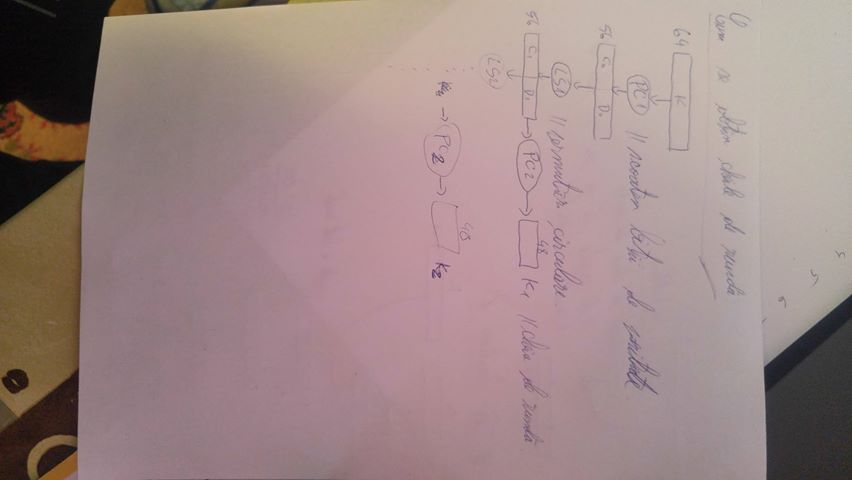 Cum se obțin cheile de rundă
64 K
PC1 // scoatem biții de paritate
56 C0 D0
LS1 // permutări circulare.
56 C1 D1 → PC2 → 48 K1 // cheia de rundă
LS2
→ PC2 → 48 K2